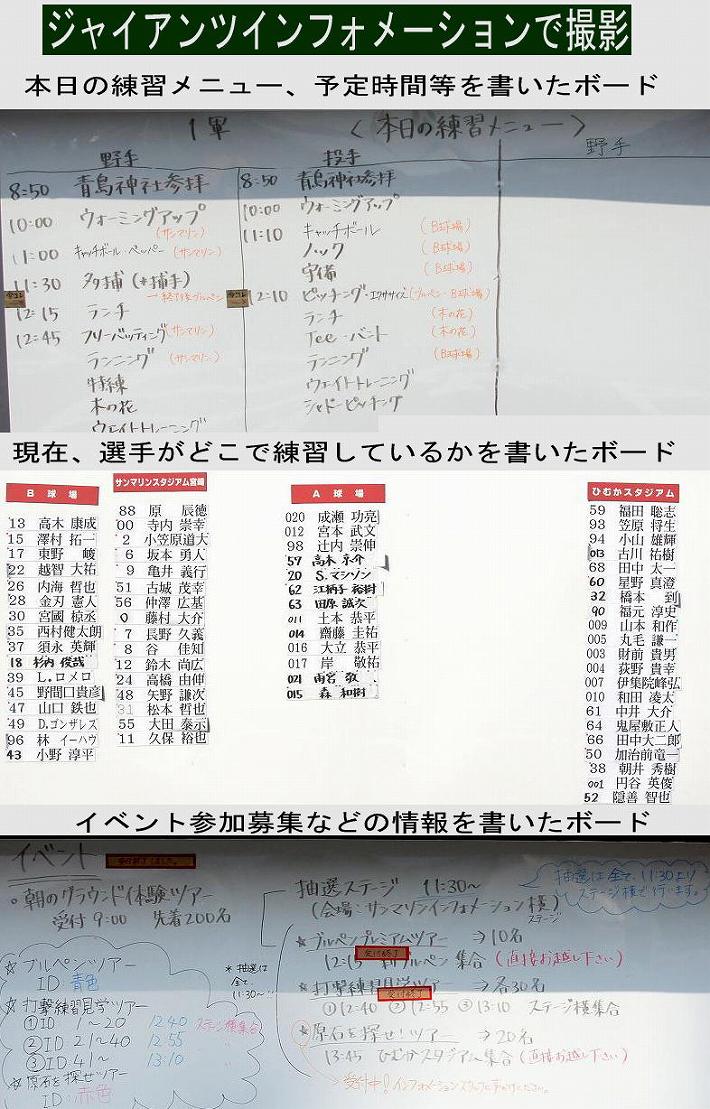 ジャイアンツインフォメーションで撮影
本日の練習メニュー、予定時間等を書いたボード
1軍 〈本日の練習メニュー〉
野手
8:50 青島神社参拝
10:00 ウォーミングアップ
(サンマリン)
11:00 キャッチボール・ペッパー (サンマリン)
11:30 (*捕手)
12:15 ランチ
12:45 フリーバッティング (サンマリン)
ランニング (サンマリン)
特練
木の花
ウェイトトレーニング
投手
8:50 青島神社参拝
10:00 ウォーミングアップ
11:10 キャッチボール (B球場)
ノック (B球場)
守備 (B球場)
12:10 ピッチング・エクササイズ (ブルペン・B球場)
ランチ (木の花)
Tee・バント (木の花)
ランニング (B球場)
ウェイトトレーニング
シャドーピッチング
野手
現在、選手がどこで練習しているかを書いたボード
B 球 場
13 高木 康成
15 澤村 拓一
17 東野 峻
22 越智 大祐
26 内海 哲也
28 金刃 憲人
30 宮國 椋丞
35 西村健太朗
37 須永 英輝
18 杉内 俊哉
39 L.ロメロ
45 野間口貴彦
47 山口 鉄也
49 D.ゴンザレス
96 林 イーハウ
43 小野 淳平
サンマリンスタジアム宮崎
88 原 辰徳
00 寺内 崇幸
2 小笠原道大
6 坂本 勇人
9 亀井 義行
51 古城 茂幸
56 仲澤 広基
0 藤村 大介
7 長野 久義
8 谷 佳知
12 鈴木 尚広
24 高橋 由伸
48 矢野 謙次
31 松本 哲也
55 大田 泰示
11 久保 裕也
A 球 場
020 成瀬 功亮
012 宮本 武文
98 辻内 崇伸
57 高木 京介
20 S.マシソン
62 江柄子 裕樹
63 田原 誠次
011 土本 恭平
014 齋藤 圭祐
016 大立 恭平
017 岸 敬祐
021 雨宮 敬
015 森 和樹
ひむかスタジアム
59 福田 聡志
93 笠原 将生
94 小山 雄輝
013 古川 祐樹
68 田中 太一
60 星野 真澄
32 橋本 到
90 福元 淳史
009 山本 和作
005 丸毛 謙一
003 財前 貴男
004 荻野 貴幸
007 伊集院峰弘
010 和田 凌太
61 中井 大介
64 鬼屋敷正人
66 田中大二郎
50 加治前竜一
38 朝井 秀樹
001 円谷 英俊
52 隠善 智也
イベント参加募集などの情報を書いたボード
イベント
・朝のグラウンド体験ツアー
受付 9:00 先着200名
☆ブルペンツアー
ID 青色
☆打撃練習見学ツアー
①ID 1～20 12:40 ステージ横集合
②ID 21～40 12:55 〃
③ID 41～ 13:10 〃
☆原石を探せツアー
ID:赤色
*抽選は
全て、
11:30～
抽選ステージ 11:30～
(会場:サンマリンインフォメーション横)
ステージ
抽選は全て、11:30より
ステージ横で行います。
☆ブルペンプレミアムツアー ⇒10名
受付終了
12:15 ブルペン集合 (直接お越し下さい)
☆打撃練習見学ツアー ⇒各30名
受付終了
①12:40 ②12:55 ③13:10 ステージ横集合
☆原石を探せ!ツアー ⇒20名
13:45 ひむかスタジアム集合 (直接お越し下さい)
受付中!インフォメーションスタッフに